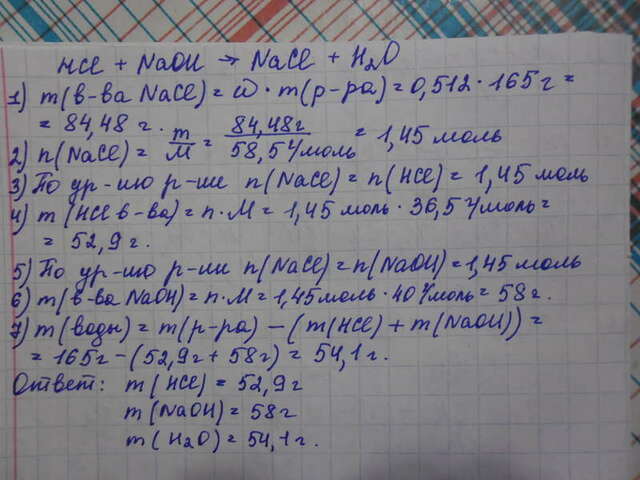 HCl + NaOH → NaCl + H₂O
1) m(в-ва NaCl) = ω · m(р-ра) = 0,512 · 165г =
= 84,48 г.
2) n(NaCl) = m/M = 84,48г/58,5г/моль = 1,45 моль
3) По ур-ию р-ии n(NaCl) = n(HCl) = 1,45 моль
4) m(HCl в-ва) = n · M = 1,45 моль · 36,5г/моль =
= 52,9 г.
5) По ур-ию р-ии n(NaCl) = n(NaOH) = 1,45 моль
6) m(в-ва NaOH) = n · M = 1,45 моль · 40г/моль = 58 г.
7) m(воды) = m(р-ра) – (m(HCl) + m(NaOH)) =
= 165г – (52,9г + 58г) = 54,1 г.
Ответ: m(HCl) = 52,9г
m(NaOH) = 58г
m(H₂O) = 54,1 г.